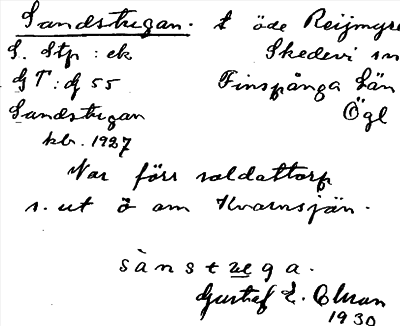 Sandstugan. t öde Reijmyre
S. Stp : ek Skedevi sn
GT : df 55 Finspånga Län
Sandstugan Ögl
kb. 1927
Var förr soldattorp
s. ut ö om Kvarnsjön.
sànstuga.
Gustaf E.
1930